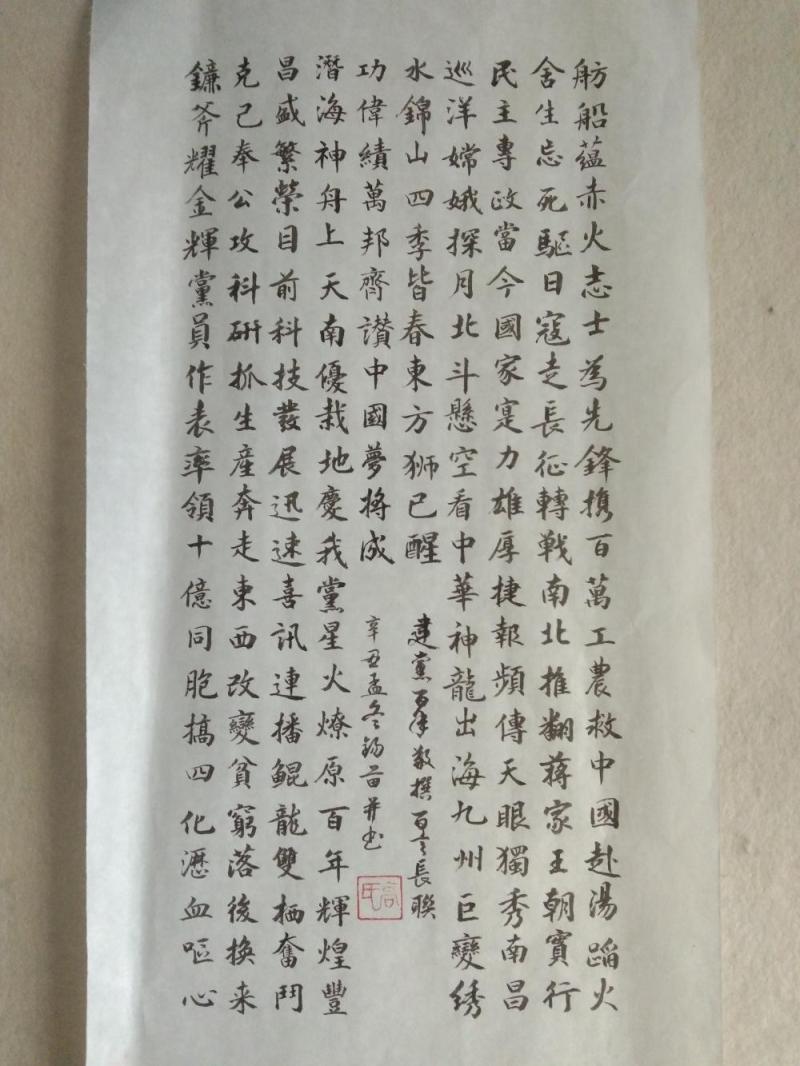 舫船蘊赤火志士為先鋒携百萬工農救中國赴湯蹈火
舍生忘死驅日寇走長征轉戰南北推翻蔣家王朝實行
民主專政當今國家寔力雄厚捷報頻傳天眼獨秀南昌
巡洋嫦娥探月北斗懸空看中華神龍出海九州巨變綉
水錦山四季皆春東方狮已醒
鐮斧耀金輝黨員作表率領十億同胞搞四化瀝血嘔心
克己奉公攻科研抓生產奔走東西改變貧窮落後换来
昌盛繁榮目前科技發展迅速喜訊連播鯤龍雙栖奮鬥
潛海神舟上天南優栽地慶我黨星火燎原百年輝煌豐
功偉績萬邦齊讚中國夢將成
建黨百年敬撰百言長聯
辛丑孟冬錫苗并书
高氏